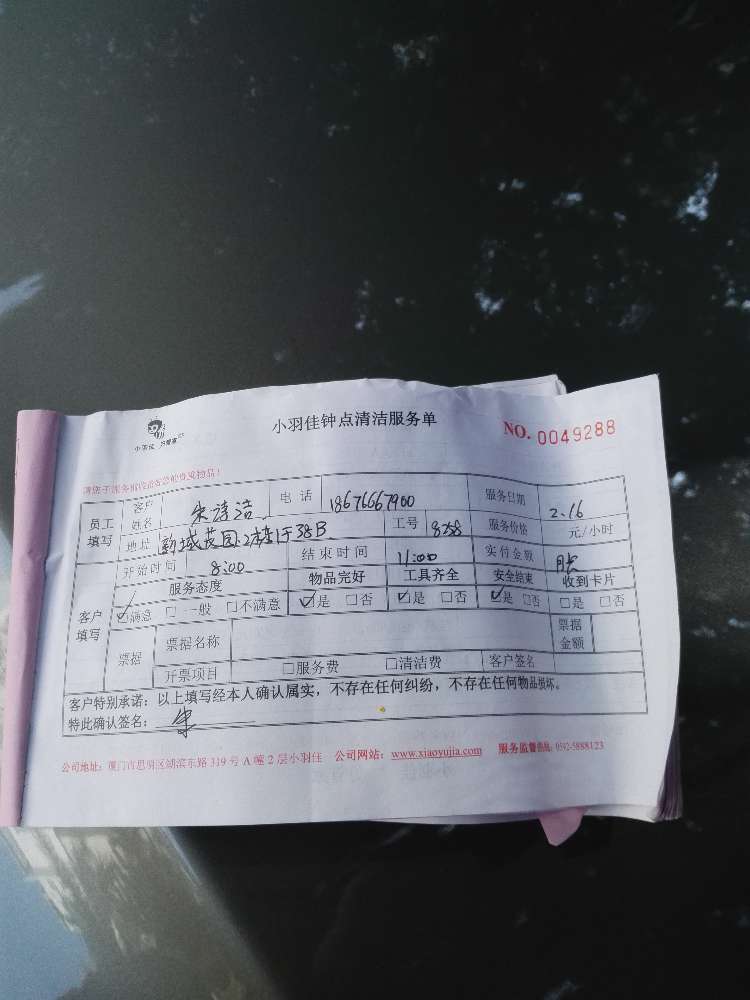 小羽佳钟点清洁服务单
NO. 0049288
小羽佳
员工填写 客户姓名 朱淳洁 电话 18676667900 服务日期 2.16
地址 2栋 38B 工号 8258 服务价格 元/小时
开始时间 8:00 结束时间 11:00 实付金额
客户填写 服务态度 物品完好 工具齐全 安全结束 收到卡片
☑满意 □一般 □不满意 ☑是 □否 ☑是 □否 ☑是 □否 □是 □否
票据 票据名称 票据金额
开票项目 □服务费 □清洁费 客户签名
客户特别承诺：以上填写经本人确认属实，不存在任何纠纷，不存在任何物品损坏。
特此确认签名： 朱
公司地址：厦门市思明区湖滨东路319号A幢2层小羽佳 公司网站：www.xiaoyujia.com 服务监督热线：0592-5888123